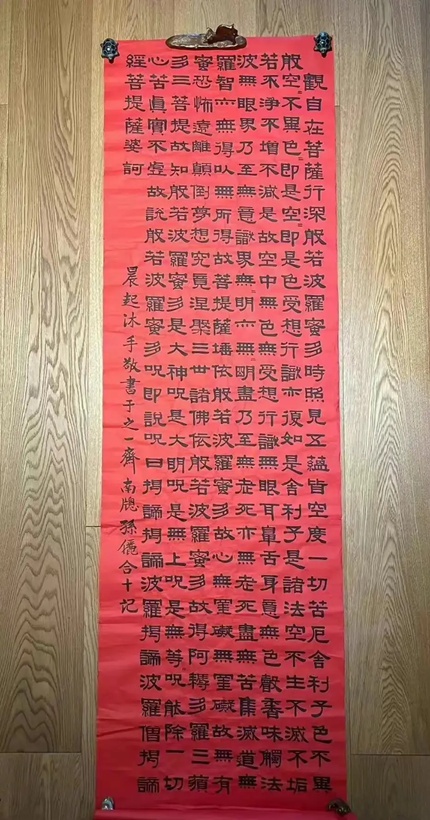 般若波羅蜜多心經
觀自在菩薩行深般若波羅蜜多時照見五蘊皆空度一切苦厄舍利子色不異
空々不異色々即是空々即是色受想行識亦復如是舍利子是諸法空不生不滅不垢
不淨不增不減是故空中無色無受想行識無眼耳鼻舌身意無色聲香味觸法
無眼界乃至無意識界無明亦無無明盡乃至無老死亦無老死盡無苦集滅道無
智亦無得以無所得故菩提薩埵依般若波羅蜜多故心無罣礙無罣礙故無有
恐怖遠離顛倒夢想究竟涅槃三世諸佛依般若波羅蜜多故得阿耨多羅三藐
三菩提故知般若波羅蜜多是大神咒是大明咒是無上咒是無等咒能除一切
苦真實不虛故說般若波羅蜜多咒即說咒曰揭諦揭諦波羅揭諦波羅僧揭諦
菩提薩婆訶
晨起沐手敬書于之一齋南牕孫儷合十記